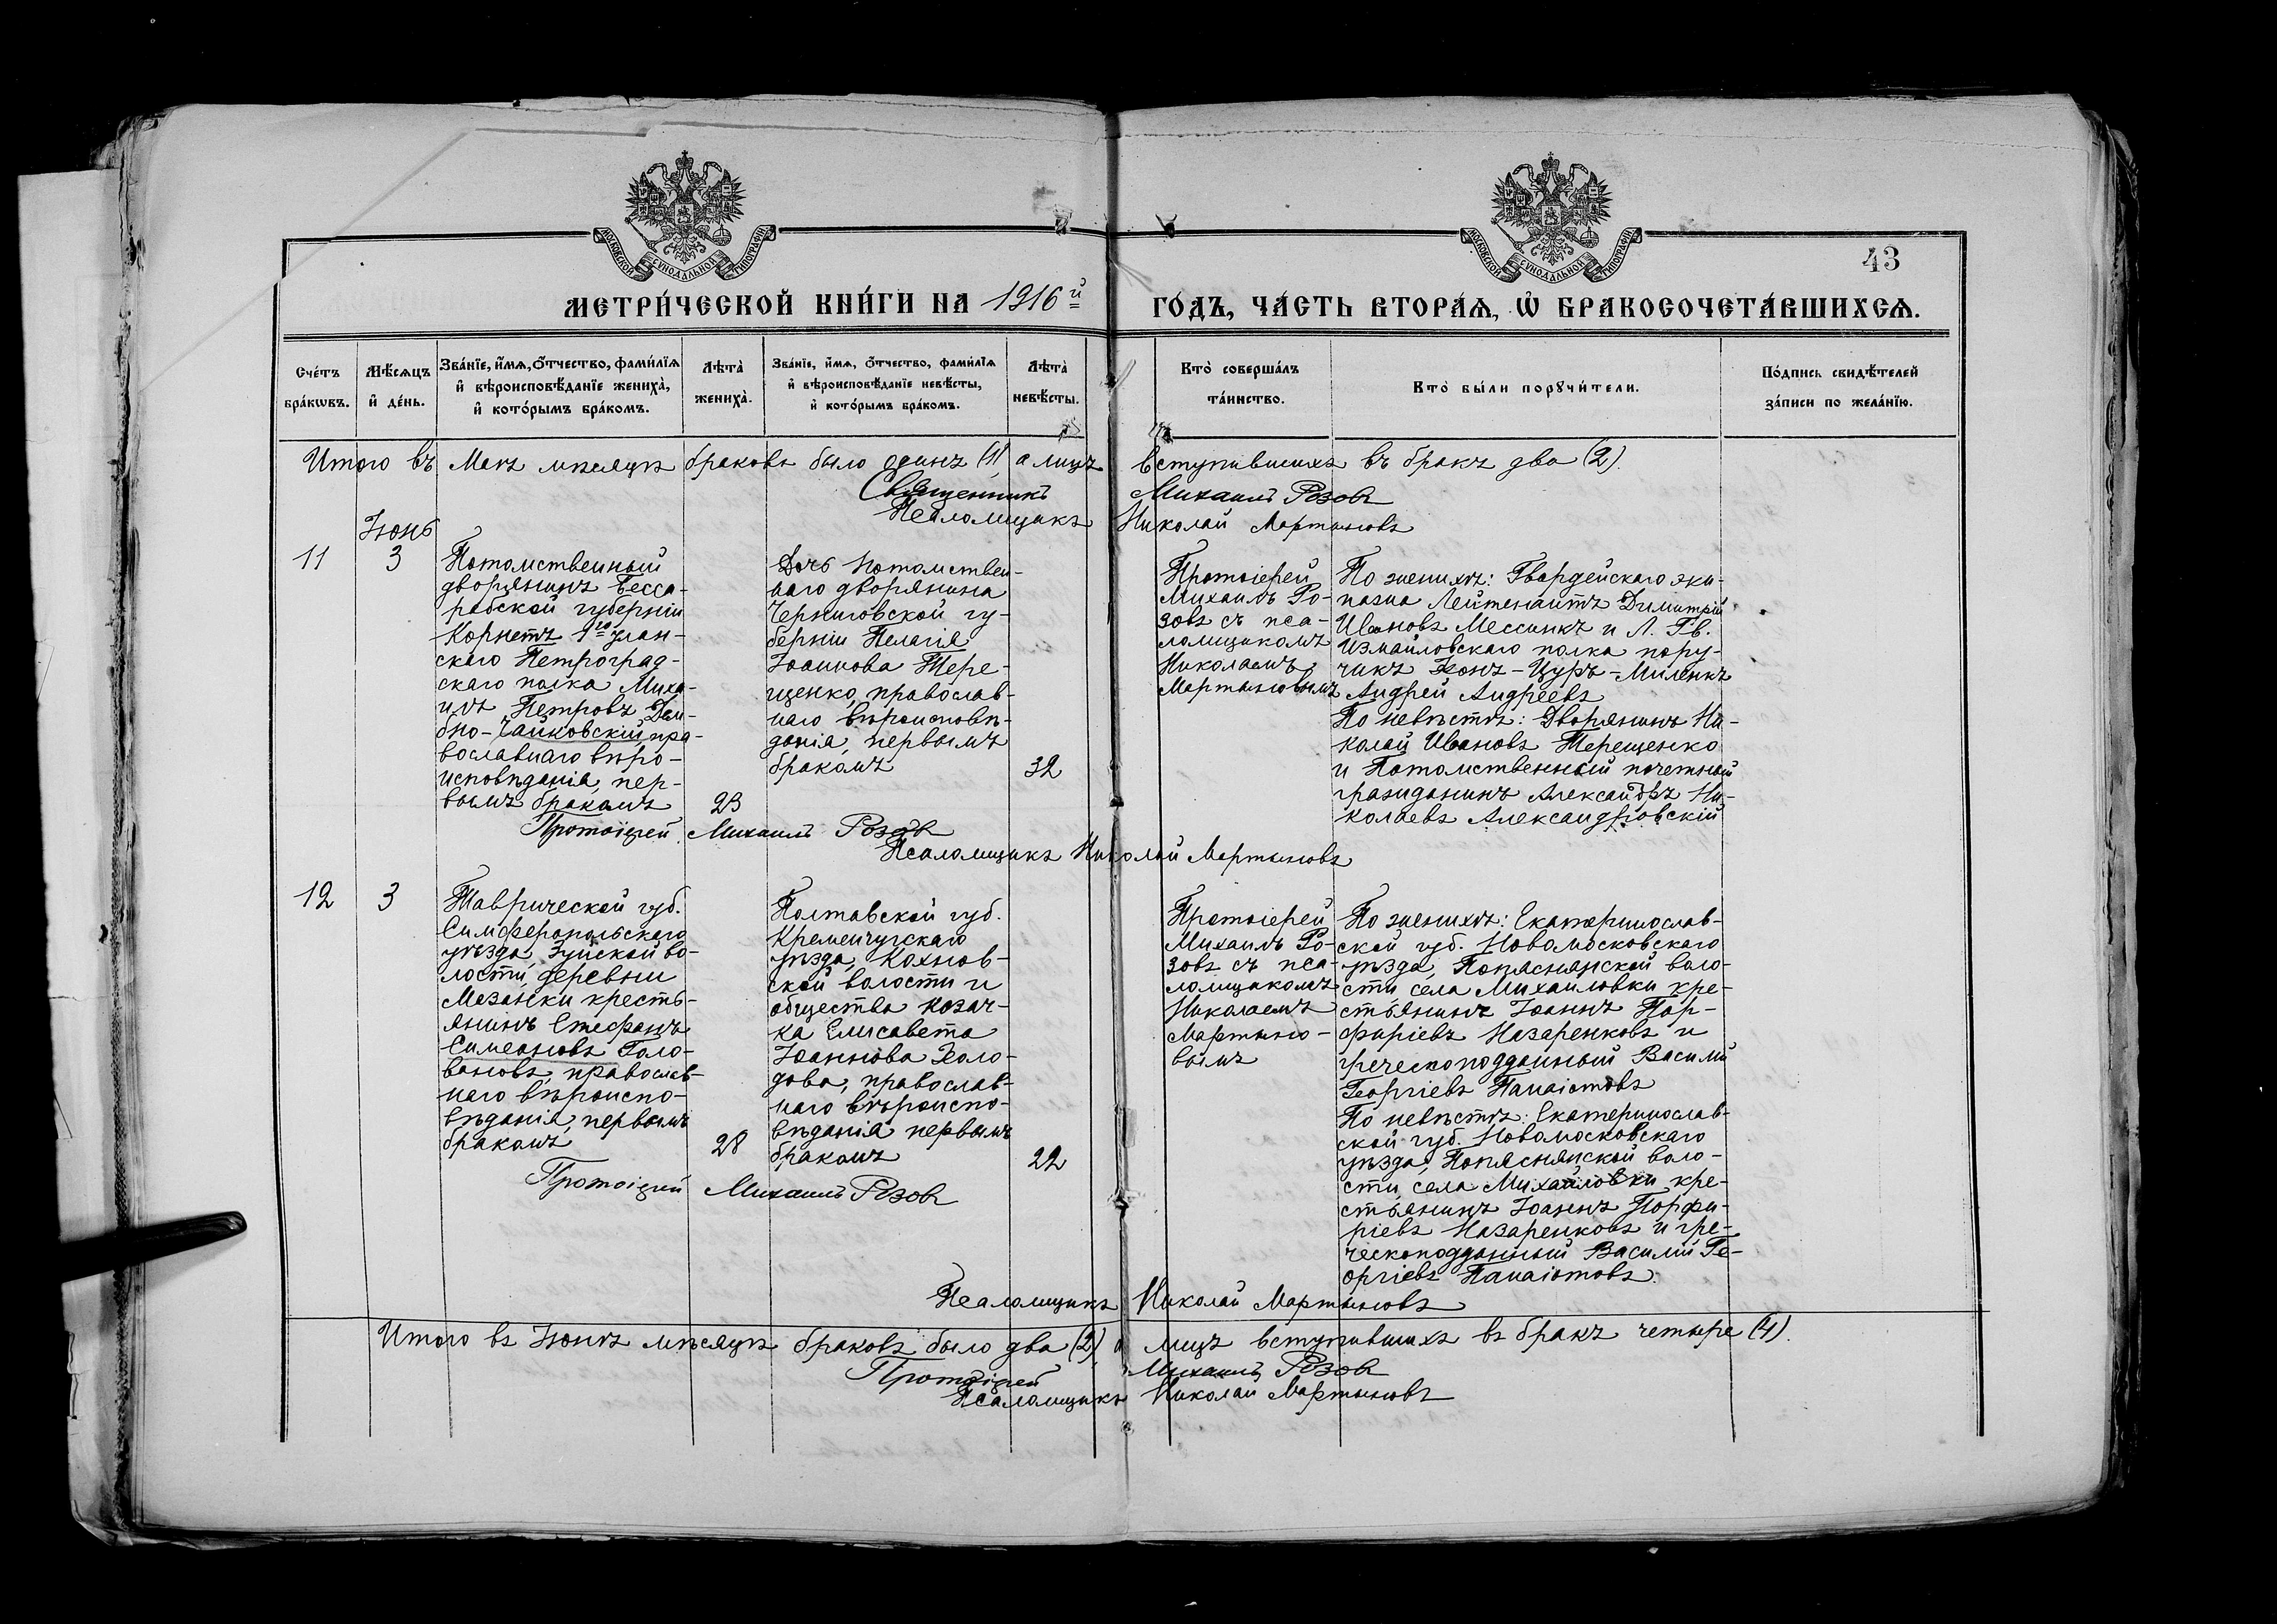 МОСКОВСКОЙ СѴНОДАЛЬНОЙ ТИПОГРАФІИ
МОСКОВСКОЙ СѴНОДАЛЬНОЙ ТИПОГРАФІИ
43
МЕТРИ́ЧЕСКОЙ КНИ́ГИ НА 1916й ГО́ДЪ, ЧА́СТЬ ВТОРА́Ѧ, Ѡ БРАКОСОЧЕТА́ВШИХСѦ.
Сче́тъ
бра́кѡвъ.
Мѣ́сѧцъ
и҆ де́нь.
Зва́нїе, и҆́мѧ, ѻ҆́тчество, фами́лїѧ
и҆ вѣроисповѣ́данїе жениха̀,
и҆ кото́рымъ бра́комъ.
Лѣта̀
жениха̀.
Зва́нїе, и҆́мѧ, ѻ҆́тчество, фами́лїѧ
и҆ вѣроисповѣ́данїе невѣ́сты,
и҆ кото́рымъ бра́комъ.
Лѣта̀
невѣ́сты.
Кто̀ соверша́лъ
та́инство.
Кто̀ бы́ли порꙋчи́тели.
По́дпись свидѣ́телей
за́писи по жела́нїю.
Итого въ Маѣ мѣсяцѣ браковъ было одинъ (1), а лицъ вступившихъ въ бракъ два (2).
Священникъ Михаилъ Розовъ
Псаломщикъ Николай Мартыновъ
Іюнь
11
3
Потомственный
дворянинъ Бесса-
рабской губерніи
Корнетъ 1го улан-
скаго Петроград-
скаго полка Миха-
илъ Петровъ Дем-
бно-Чайковскій, пра-
вославнаго вѣро-
исповѣданія, пер-
вымъ бракомъ
23
Дочь потомствен-
наго дворянина
Черниговской гу-
берніи Пелагія
Іоаннова Тере-
щенко, православ-
наго вѣроисповѣ-
данія, первымъ
бракомъ
32
Протоіерей
Михаилъ Ро-
зовъ съ пса-
ломщикомъ
Николаемъ
Мартыновымъ
По женихѣ: Гвардейскаго эки-
пажа Лейтенантъ Димитрій
Ивановъ Мессинкъ и Л. Гв.
Измайловскаго полка пору-
чикъ Фонъ-Цуръ-Миленъ
Андрей Андреевъ
По невѣстѣ: Дворянинъ Ни-
колай Ивановъ Терещенко
и Потомственный почетный
гражданинъ Александръ Ни-
колаевъ Александровскій
Протоіерей Михаилъ Розовъ
Псаломщикъ Николай Мартыновъ
12
3
Таврической губ.
Симферопольскаго
уѣзда, Зуйской во-
лости, деревни
Мазанки кресть-
янинъ Стефанъ
Симеоновъ Голо-
вановъ, православ-
наго вѣроиспо-
вѣданія, первымъ
бракомъ
28
Полтавской губ.
Кременчугскаго
уѣзда, Кохнов-
ской волости и
общества козач-
ка Елисавета
Іоаннова Холо-
дова, православ-
наго вѣроиспо-
вѣданія первымъ
бракомъ
22
Протоіерей
Михаилъ Ро-
зовъ съ пса-
ломщикомъ
Николаемъ
Мартыно-
вымъ
По женихѣ: Екатеринослав-
ской губ. Новомосковскаго
уѣзда, Попаснянской воло-
сти села Михайловки кре-
стьянинъ Іоаннъ Пор-
фиріевъ Назаренковъ и
греческоподданный Василій
Георгіевъ Панаіотовъ
По невѣстѣ: Екатеринослав-
ской губ. Новомосковскаго
уѣзда, Попаснянской воло-
сти, села Михайловки кре-
стьянинъ Іоаннъ Порфи-
ріевъ Назаренковъ и гре-
ческоподданный Василій Ге-
оргіевъ Панаіотовъ.
Протоіерей Михаилъ Розовъ
Псаломщикъ Николай Мартыновъ
Итого въ Іюнѣ мѣсяцѣ браковъ было два (2), а лицъ вступившихъ въ бракъ четыре (4).
Протоіерей Михаилъ Розовъ
Псаломщикъ Николай Мартыновъ